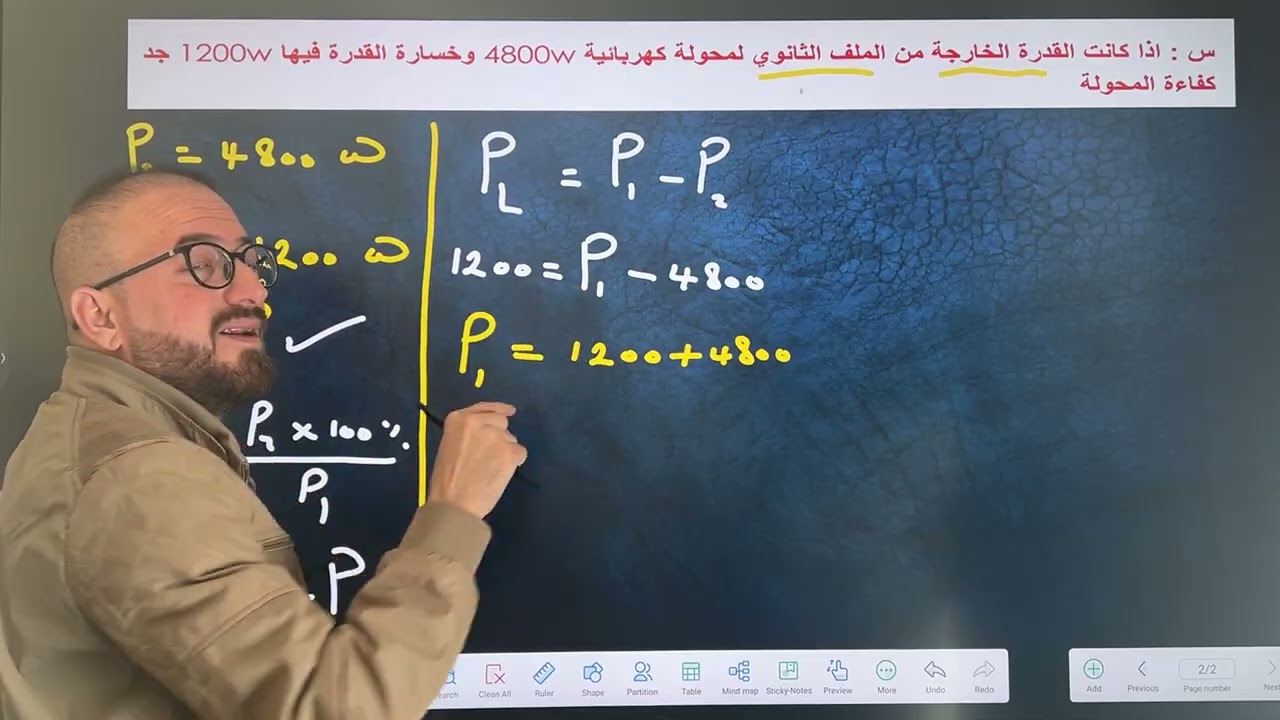 س : اذا كانت القدرة الخارجة من الملف الثانوي لمحولة كهربائية 4800w وخسارة القدرة فيها 1200w جد
كفاءة المحولة
P = 4800 w
1200 w
P₂ × 100 %
P₁
P
P_L = P₁ - P₂
1200 = P₁ - 4800
P₁ = 1200 + 4800
Clean All
Ruler
Shape
Partition
Table
Mind map
Sticky-Notes
Preview
More
Undo
Redo
Add
Previous
2/2
Page number